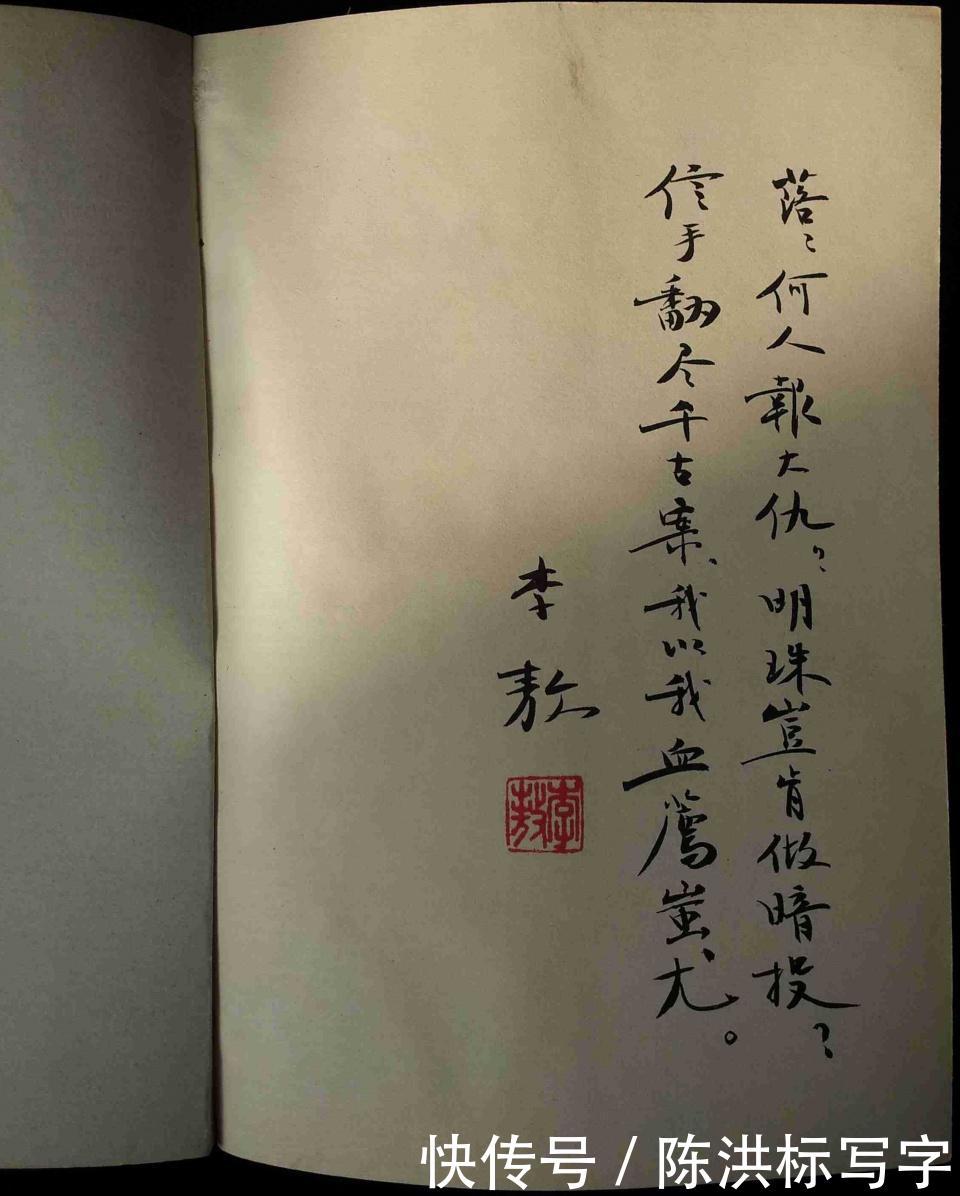 落〻何人報大仇？明珠豈肯做暗投？
信手翻尽千古案、我以我血薦蚩尤。
李敖
李敖
快传号 / 陈洪标写字